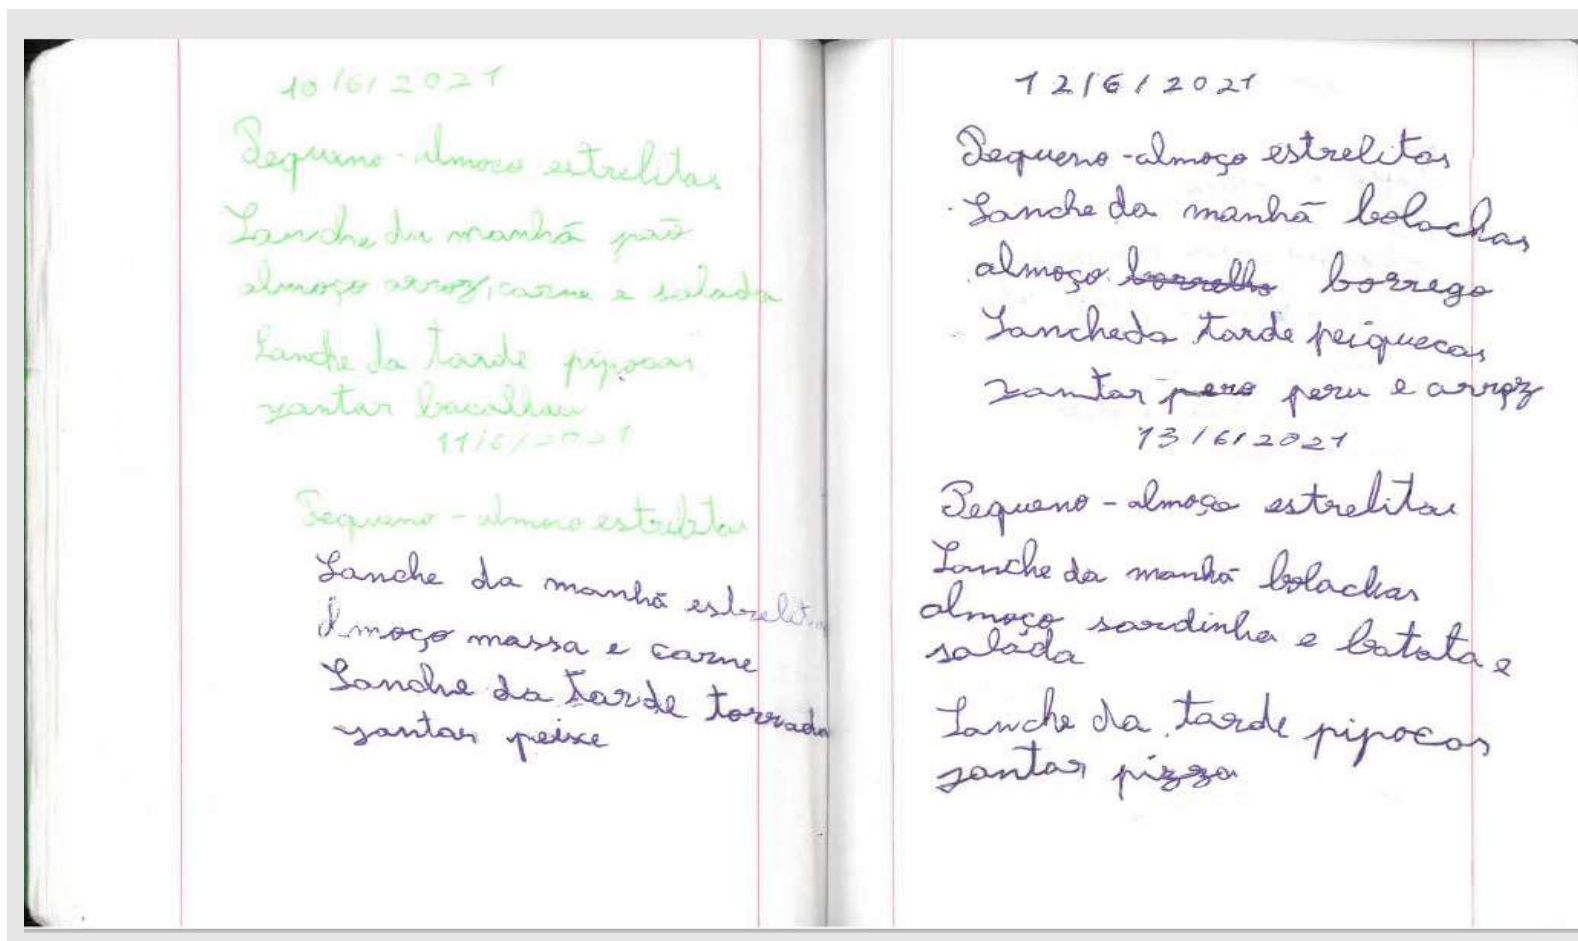 10/6/2021
Pequeno-almoço estrelitas
Lanche da manhã pão
almoço arroz, carne e salada
Lanche da tarde pipocas
jantar bacalhau
11/6/2021
Pequeno-almoço estrelitas
Lanche da manhã estrelitas
Almoço massa e carne
Lanche da tarde torrada
jantar peixe
12/6/2021
Pequeno-almoço estrelitas
Lanche da manhã bolachas
almoço borrelho borrego
Lanche da tarde peiquecas
jantar pero peru e arroz
13/6/2021
Pequeno-almoço estrelitas
Lanche da manhã bolachas
almoço sardinha e batata e
saláda
Lanche da tarde pipocas
jantar pizza